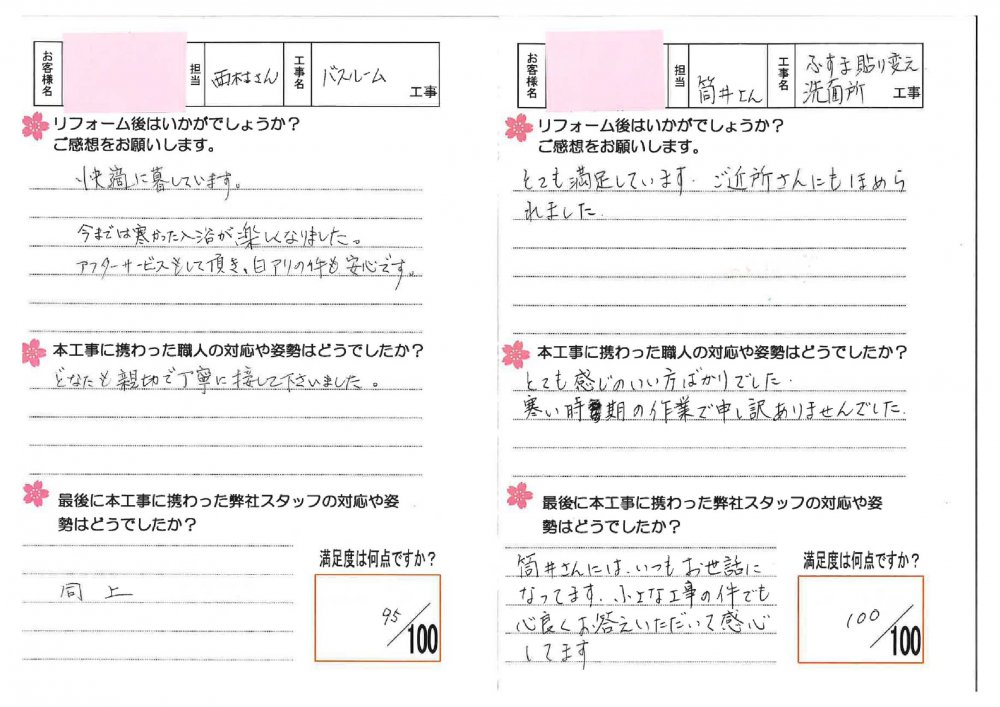 お客様名
担当
西村さん
工事名
バスルーム
工事
リフォーム後はいかがでしょうか?
ご感想をお願いします。
快適に暮しています。
今までは寒かった入浴が楽しくなりました。
アフターサービスもして頂き、白アリの件も安心です。
本工事に携わった職人の対応や姿勢はどうでしたか?
どなたも親切で丁寧に接して下さいました。
最後に本工事に携わった弊社スタッフの対応や姿
勢はどうでしたか?
同上
満足度は何点ですか?
95/100
お客様名
担当
筒井さん
工事名
ふすま貼り変え
洗面所
工事
リフォーム後はいかがでしょうか?
ご感想をお願いします。
とても満足しています. ご近所さんにもほめら
れました.
本工事に携わった職人の対応や姿勢はどうでしたか?
とても感じのいい方ばかりでした.
寒い時期の作業で申し訳ありませんでした.
最後に本工事に携わった弊社スタッフの対応や姿
勢はどうでしたか?
筒井さんには、いつもお世話に
なってます. 小さな工事の件でも
心良くお答えいただいて感心
してます
満足度は何点ですか?
100/100